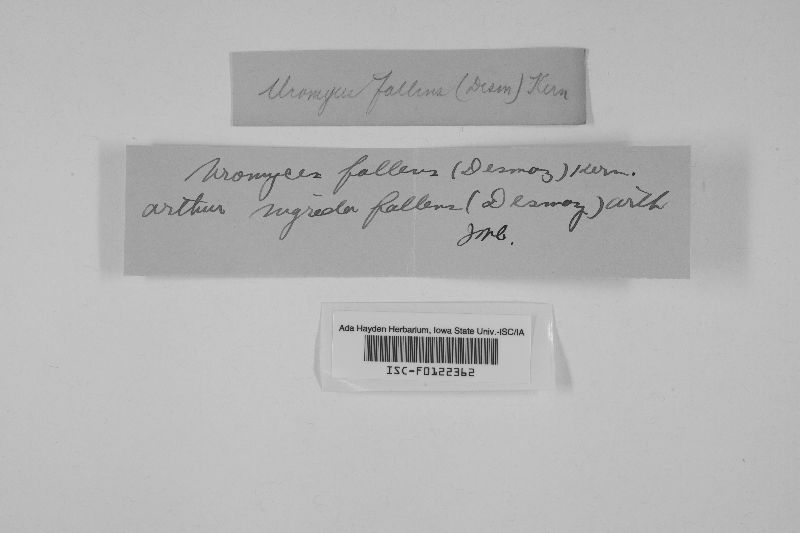 Uromyces fallens (Desm) Kern
Uromyces fallens (Desmaz) Kern.
Arthur nigredo fallens (Desmaz) Arth
Ada Hayden Herbarium, Iowa State Univ.-ISC/IA
ISC-F0122362